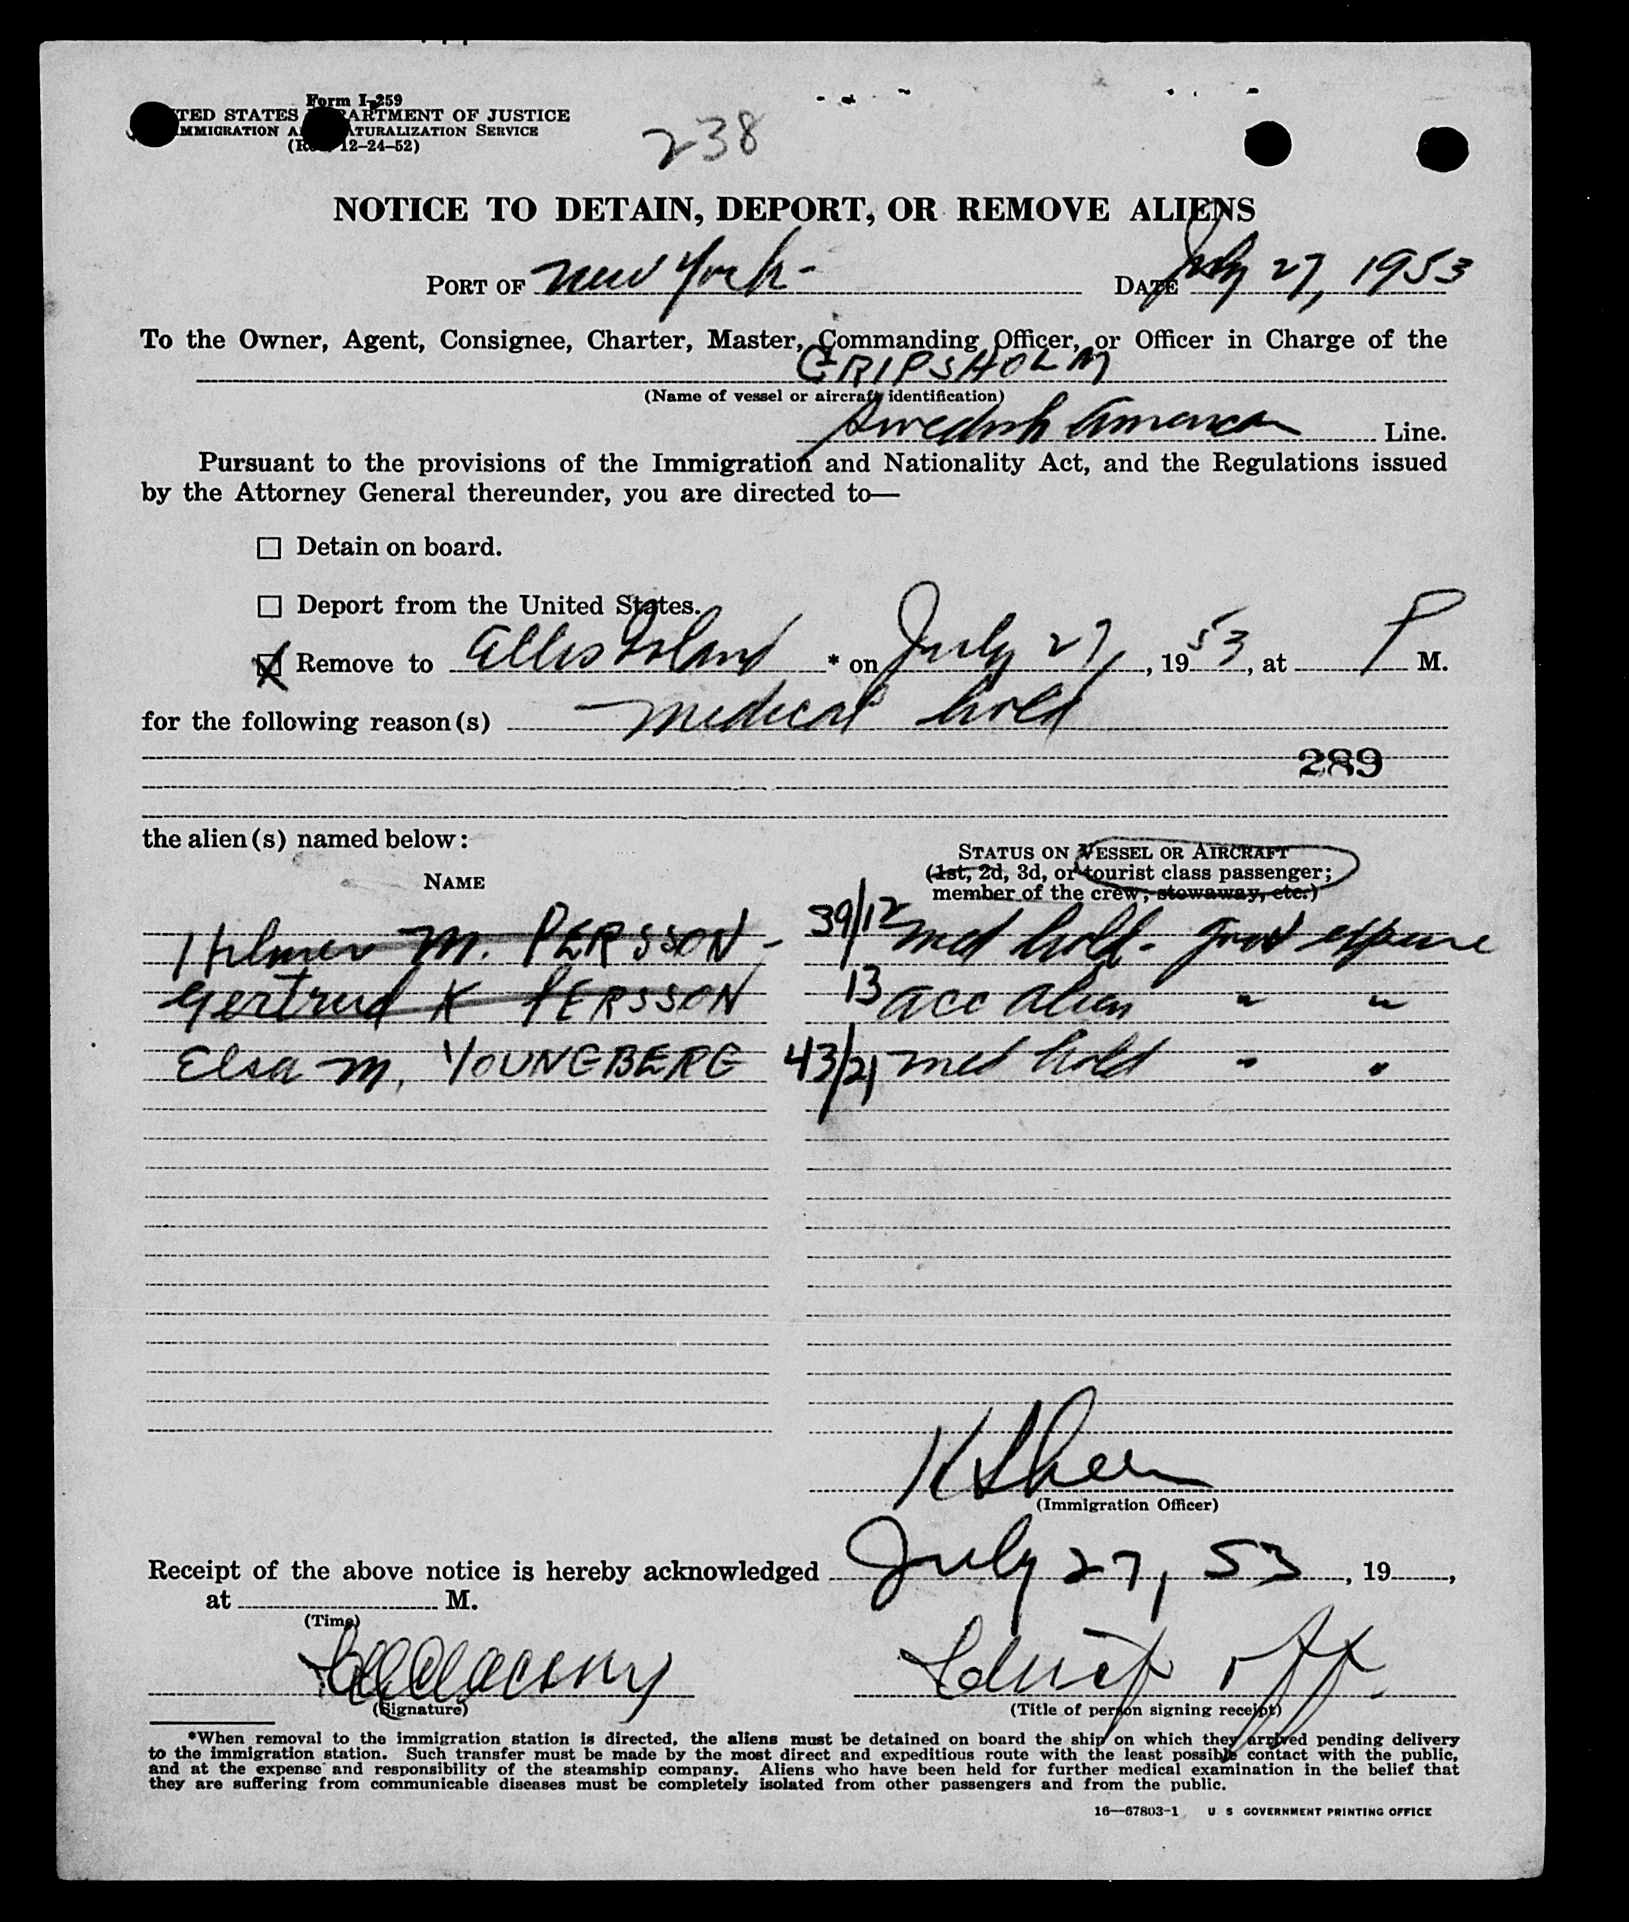 Form I-259
UNITED STATES DEPARTMENT OF JUSTICE
IMMIGRATION AND NATURALIZATION SERVICE
(Rev. 12-24-52)
238
NOTICE TO DETAIN, DEPORT, OR REMOVE ALIENS
PORT OF New York - DATE July 27, 1953
To the Owner, Agent, Consignee, Charter, Master, Commanding Officer, or Officer in Charge of the
GRIPSHOLM
(Name of vessel or aircraft identification)
Swedish American Line.
Pursuant to the provisions of the Immigration and Nationality Act, and the Regulations issued
by the Attorney General thereunder, you are directed to—
☐ Detain on board.
☐ Deport from the United States.
☒ Remove to Ellis Island * on July 27, 1953, at P M.
for the following reason(s) Medical hold
289
the alien(s) named below:
STATUS ON VESSEL OR AIRCRAFT
(1st, 2d, 3d, or tourist class passenger;
member of the crew, stowaway, etc.)
NAME
Hilmer M. PERSSON - 39/12 med hold - Govt expense
Gertrud K PERSSON 13 acc alien " "
Elsa M. YOUNGBERG 43/21 med hold " "
(Immigration Officer)
Receipt of the above notice is hereby acknowledged July 27, 53, 19 ,
at M.
(Time)
(Signature)
(Title of person signing receipt)
*When removal to the immigration station is directed, the aliens must be detained on board the ship on which they arrived pending delivery
to the immigration station. Such transfer must be made by the most direct and expeditious route with the least possible contact with the public,
and at the expense and responsibility of the steamship company. Aliens who have been held for further medical examination in the belief that
they are suffering from communicable diseases must be completely isolated from other passengers and from the public.
16—67803-1 U S GOVERNMENT PRINTING OFFICE